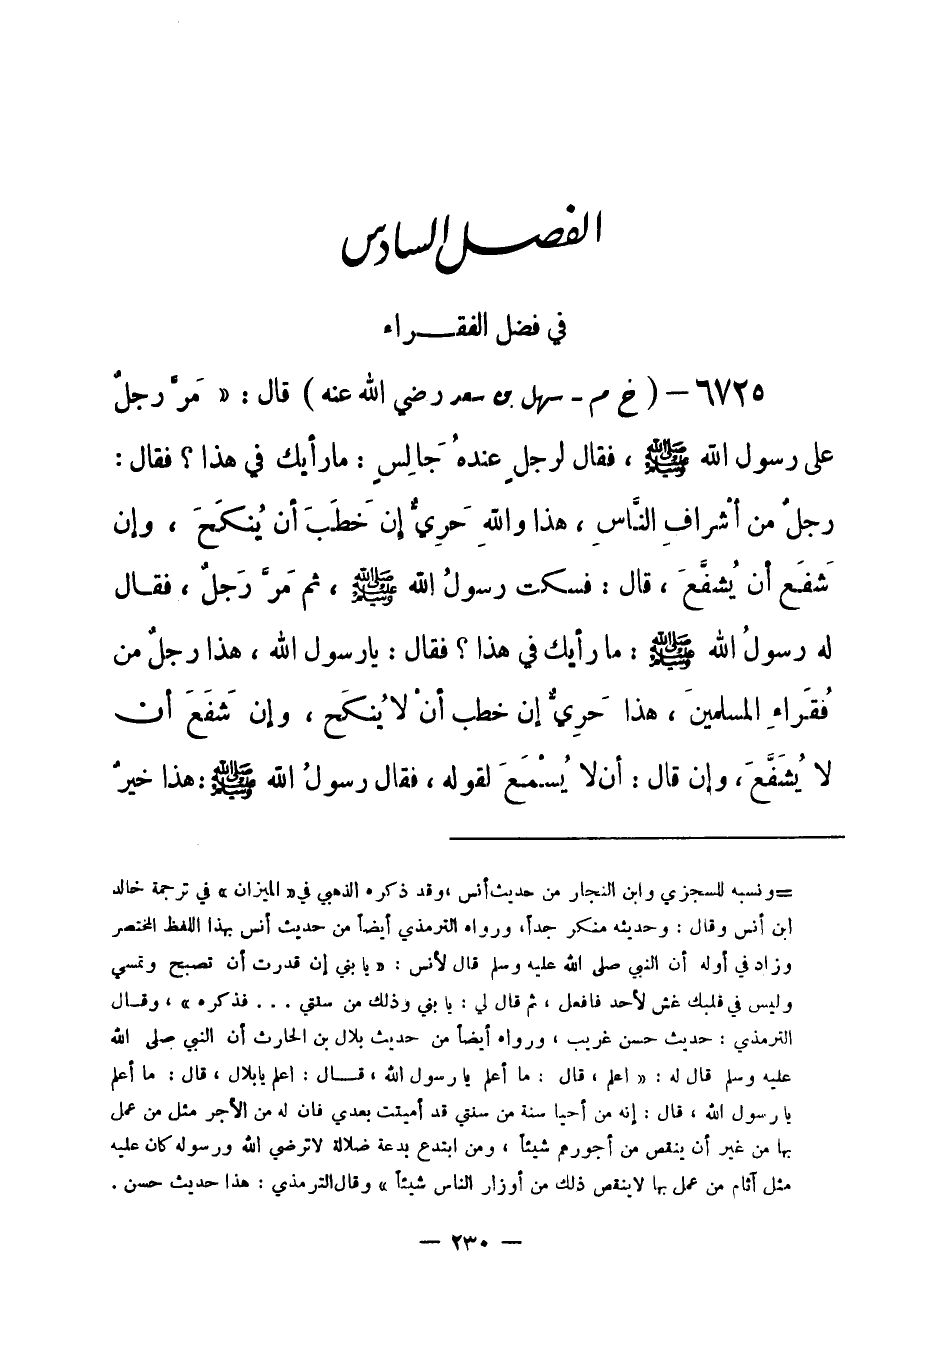 الفصل السادس
في فضل الفقـــراء
٦٧٢٥ – ( خ م - سهل بن سعد رضي الله عنه ) قال : « مَرَّ رجلٌ
على رسول الله ﷺ ، فقال لرجلٍ عندهُ جَالِسٍ : مارأيك في هذا ؟ فقال :
رجلٌ من أشْرافِ النَّاسِ ، هذا واللهِ حَرِيٌّ إن خَطَبَ أن يُنكَحَ ، وإن
شَفَع أن يُشفَّعَ ، قال : فسكت رسولُ الله ﷺ ، ثم مَرَّ رَجلٌ ، فقـال
له رسولُ الله ﷺ : ما رأيك في هذا ؟ فقال : يارسول الله ، هذا رجلٌ من
فُقَراءِ المسلمينَ ، هذا حَرِيٌّ إن خطب أنْ لا يُنكَح ، وإن شَفَعَ أن
لا يُشَفَّعَ ، وإن قال : أن لا يُسْمَعَ لقوله ، فقال رسولُ الله ﷺ : هذا خيرٌ
=ونسبه للسجزي وابن النجار من حديث أنس ، وقد ذكره الذهبي في « الميزان » في ترجمة خالد
ابن أنس وقال : وحديثه منكر جداً، ورواه الترمذي أيضاً من حديث أنس بهذا اللفظ المختصر
وزاد في أوله أن النبي صلى الله عليه وسلم قال لأنس : « يا بني إن قدرت أن تصبح وتمسي
وليس في قلبك غش لأحد فافعل ، ثم قال لي : يا بني وذلك من سنتي . . . فذكره » ، وقـال
الترمذي : حديث حسن غريب ، ورواه أيضاً من حديث بلال بن الحارث أن النبي صلى الله
عليه وسلم قال له : « اعلم ، قال : ما أعلم يا رسول الله ، قـــال : اعلم يابلال ، قال : ما أعلم
يا رسول الله ، قال : إنه من أحيا سنة من سنتي قد أميتت بعدي فان له من الأجر مثل من عمل
بها من غير أن ينقص من أجورهم شيئاً ، ومن ابتدع بدعة ضلالة لاترضي الله ورسوله كان عليه
مثل آثام من عمل بها لاينقص ذلك من أوزار الناس شيئاً » وقال الترمذي : هذا حديث حسن .
— ٢٣٠ —